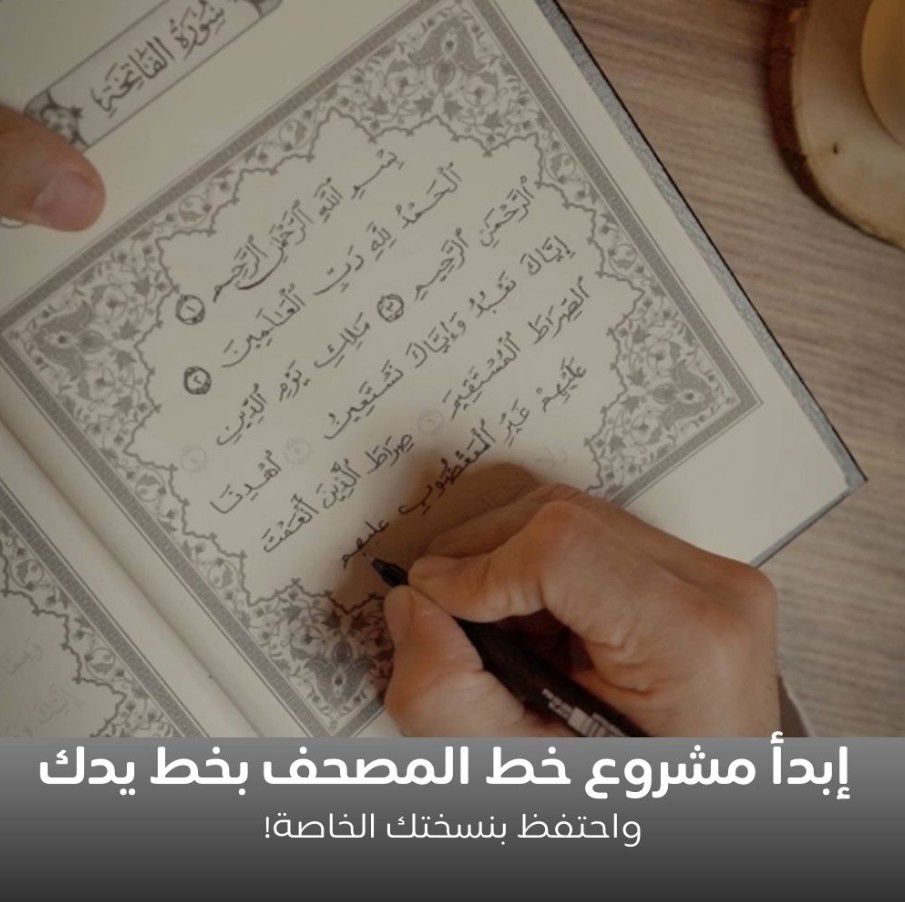 سُورَةُ الفَاتِحَةِ
بِسْمِ اللَّهِ الرَّحْمَٰنِ الرَّحِيمِ ١
الْحَمْدُ لِلَّهِ رَبِّ الْعَالَمِينَ ٢
الرَّحْمَٰنِ الرَّحِيمِ ٣ مَالِكِ يَوْمِ الدِّينِ
إِيَّاكَ نَعْبُدُ وَإِيَّاكَ نَسْتَعِينُ ٥ اهْدِنَا
الصِّرَاطَ الْمُسْتَقِيمَ ٦ صِرَاطَ الَّذِينَ أَنْعَمْتَ
عَلَيْهِمْ غَيْرِ الْمَغْضُوبِ عليهم
إبدأ مشروع خط المصحف بخط يدك
واحتفظ بنسختك الخاصة!